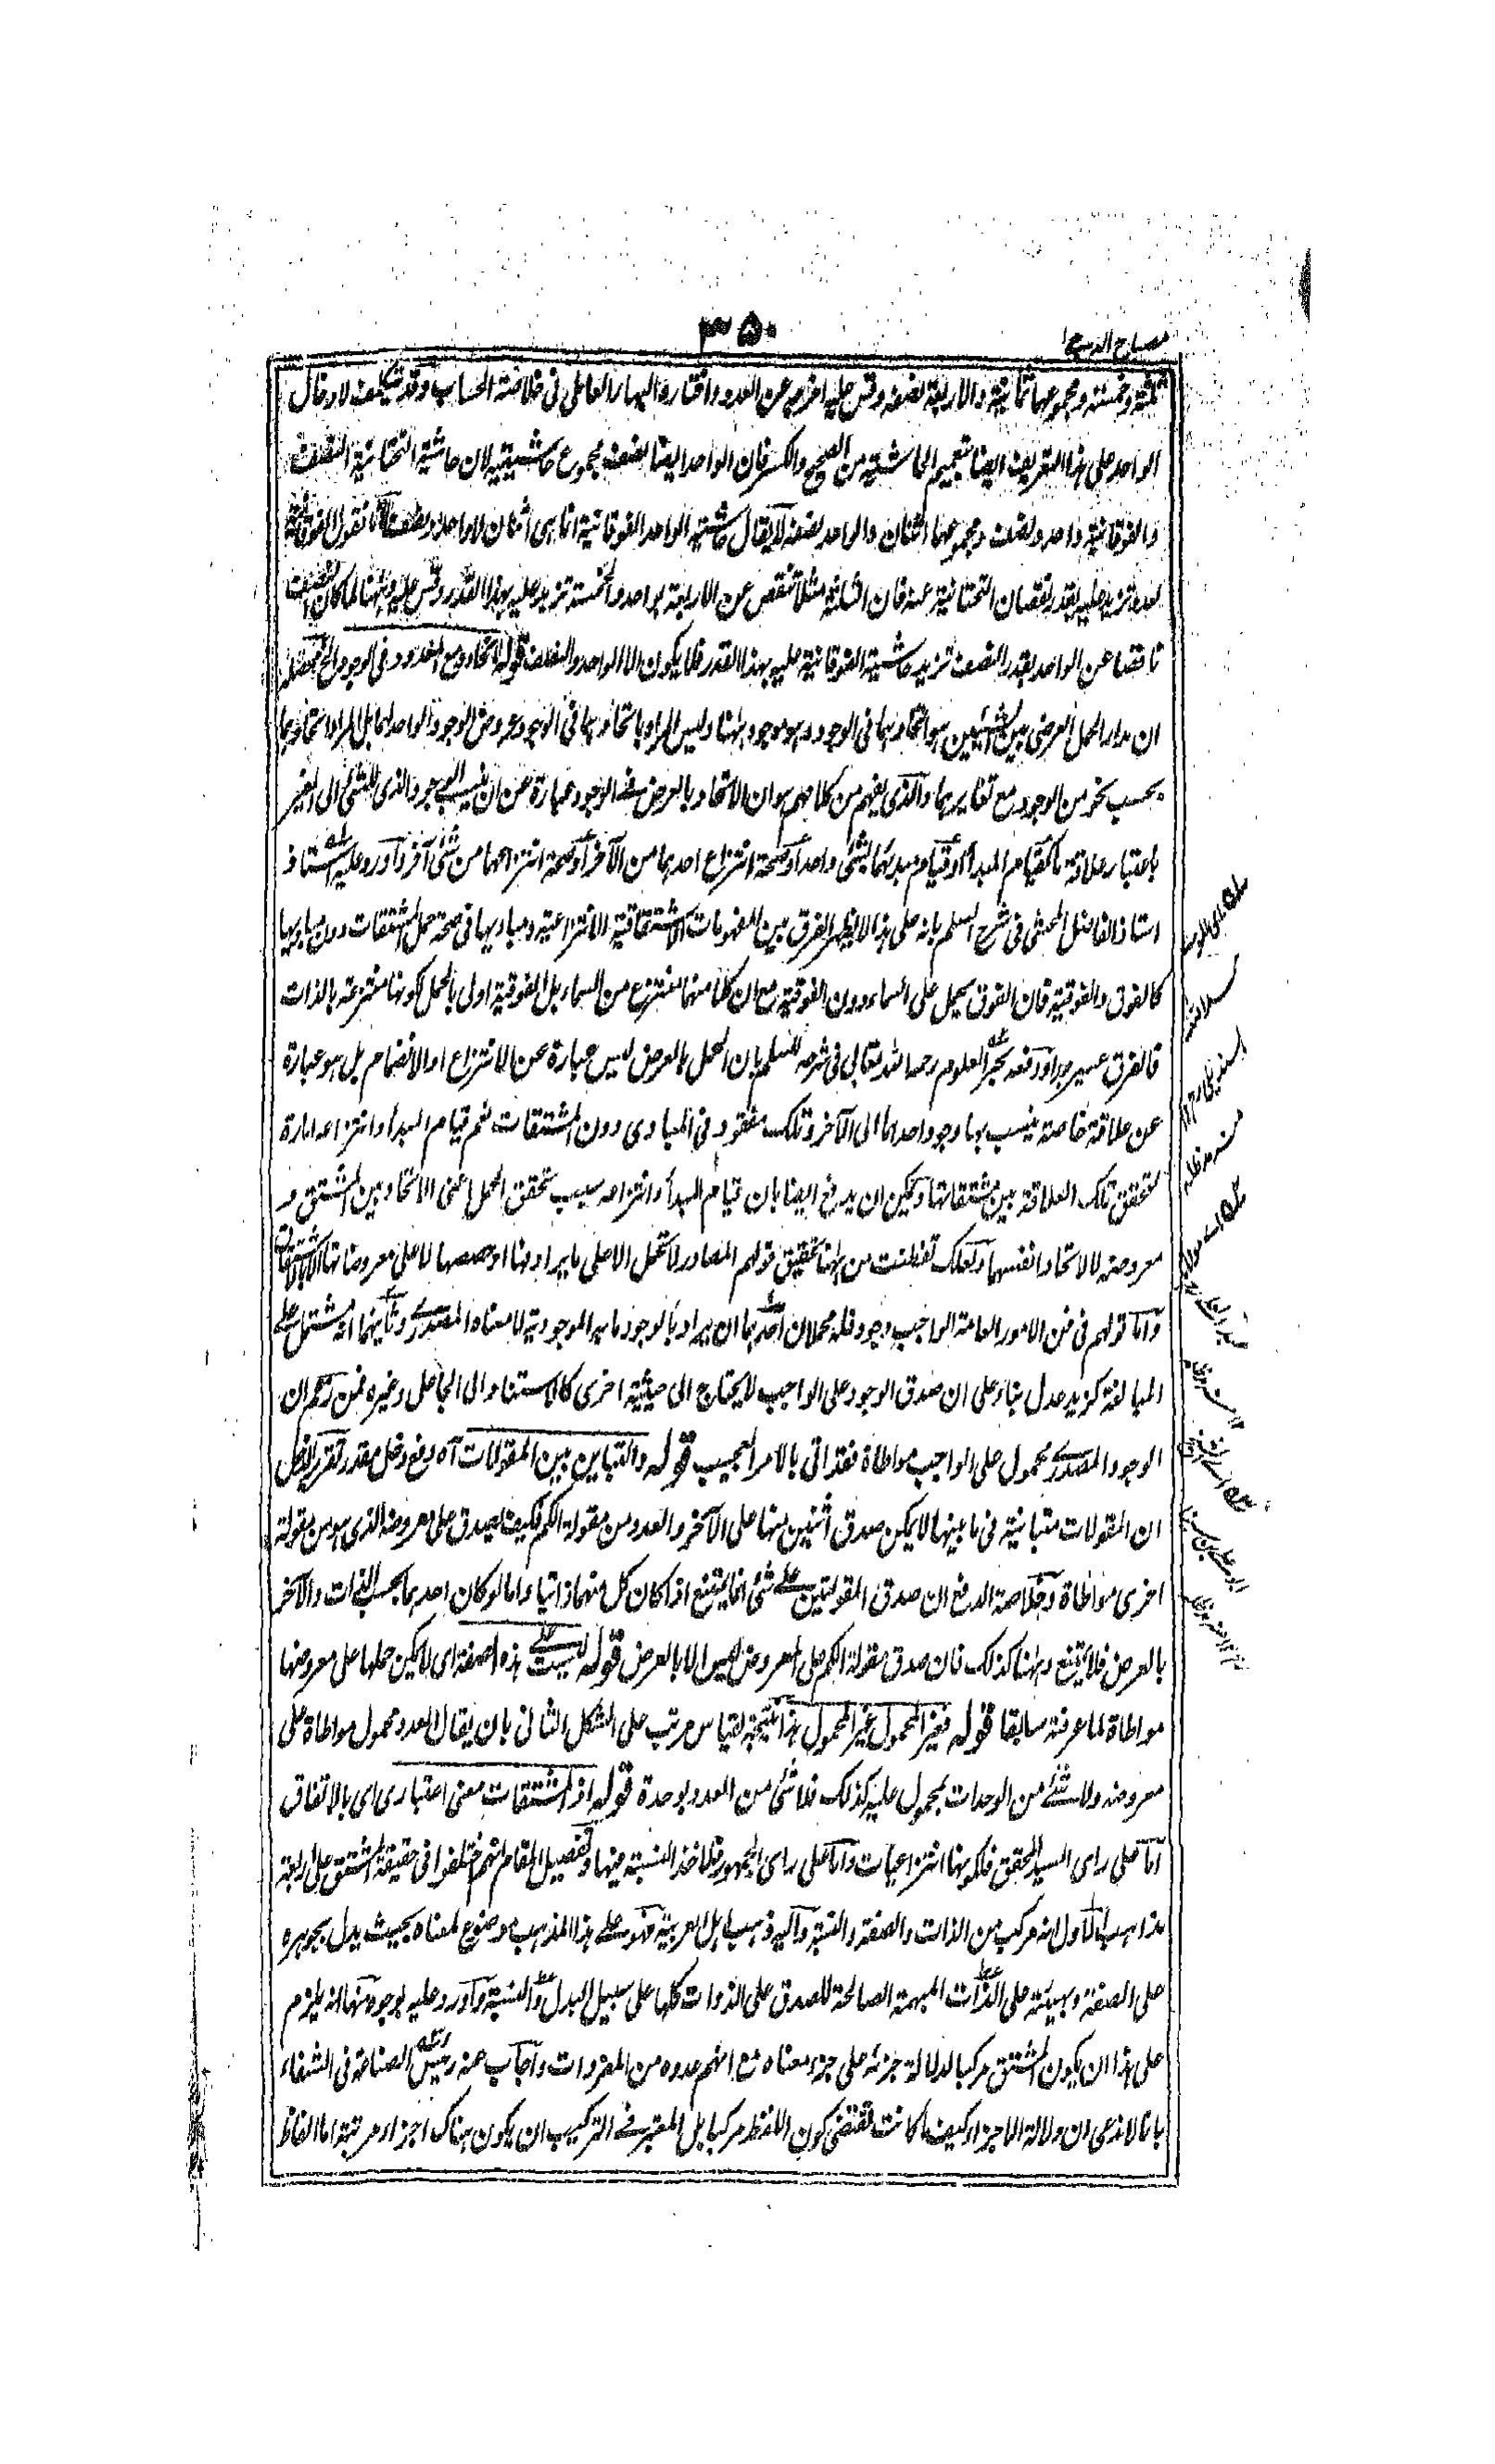 مصباح الدجى
۳۵۰
ثلثة وخمسته ومجموعها ثمانية والاربعة نصفه وقس عليه اخرج عن العدد واختاره البهاء العاملي في خلاصة الحساب وقد يتكلف لادخال
الواحد على هذا التعريف ايضا بتعميم الحاشية من الصحيح والكسر فان الواحد ايضا نصف مجموع حاشيتيه لان حاشيته التحتانية النصف
والفوقانية واحد ونصف ومجموعهما اثنان والواحد نصفه لا يقال حاشية الواحد الفوقانية انما هي اثنان لا واحد ونصف لانا نقول الفوقانية
لعدد تزيد عليه بقدر نقصان التحتانية عنه فان الثلثة مثلا تنقص عن الاربعة بواحد والخمسة تزيد عليه بهذا القدر وقس عليه وههنا لما كان النصف
ناقصا عن الواحد بقدر النصف تزيد حاشية الفوقانية عليه بهذا القدر فلا يكون الا الواحد والنصف قوله لاتحاده مع المعدود في الوجود الخ محصله
ان مدار الحمل العرضي بين الشيئين هو اتحادهما في الوجود وهو موجود ههنا وليس المراد باتحادهما في الوجود عروض الوجود الواحد لهما بل المراد اتحادهما
بحسب نحو من الوجود مع تغايرهما والذي يفهم من كلامهم هو ان الاتحاد بالعرض في الوجود عبارة عن ان ينسب الوجود الذي للشئ الى الغير
باعتبار علاقة كقيام المبدأ او قيام مبدئهما بشئ واحد او صحة انتزاع احدهما من الآخر او صحة انتزاعهما من شئ آخر واورد عليه استاذ
استاذ الفاضل المحشي في شرح السلم بانه على هذا لا يظهر الفرق بين المفهومات الاشتقاقية الانتزاعية ومباديها في صحة حمل المشتقات دون مباديها
كالفوق والفوقية فان الفوق يحمل على السماء دون الفوقية مع ان كلا منهما منتزع من السماء بل الفوقية اولى بالحمل لكونها منتزعة بالذات
فالفرق عسير جدا ودفعه بحر العلوم رحمه الله تعالى في شرحه للسلم بان الحمل بالعرض ليس عبارة عن الانتزاع او الانضمام بل هو عبارة
عن علاقة خاصة ينسب بها وجود احدهما الى الآخر وتلك مفقود في المبادي دون المشتقات نعم قيام المبدأ وانتزاعه امارة
لتحقق تلك العلاقة بين مشتقاتها ويمكن ان يدفع ايضا بان قيام المبدأ وانتزاعه سبب تحقق الحمل اعني الاتحاد بين المشتق و
معروضه لا لاتحاد انفسهما ولعلك تفطنت من ههنا تحقيق قولهم المصادر لا تحمل الا على ما يرادفها او حصصها لا على معروضاتها الا بالاشتقاق
واما قولهم في فن الامور العامة الواجب وجود فله محملان احدهما ان يراد بالوجود ما به الموجودية لا معناه المصدري وثانيهما انه مشتمل على
المبالغة كزيد عدل بناء على ان صدق الوجود على الواجب لا يحتاج الى حيثية اخرى كالاستناد الى الجاعل وغيره فمن زعم ان
الوجود المصدري محمول على الواجب مواطاة فقد اتى بالامر العجيب قوله والتباين بين المقولات آه دفع دخل مقدر تقرير الدخل
ان المقولات متباينة في ما بينها لا يمكن صدق اثنين منها على الآخر والعدد من مقولة الكم فكيف يصدق على معروضه الذي هو من مقولة
اخرى مواطاة وخلاصة الدفع ان صدق المقولتين على شئ انما يمتنع اذا كان كل منهما ذاتيا واما لو كان احدهما بحسب الذات والآخر
بالعرض فلا يمتنع وههنا كذلك فان صدق مقولة الكم على المعروض ليس الا بالعرض قوله ليست على هذه الصفة اى لا يمكن حملها على معروضها
مواطاة لما عرفته سابقا قوله فغير المحمول غير المحمول هذا نتيجة لقياس مرتب على الشكل الثاني بان يقال العدد محمول مواطاة على
معروضه ولا شئ من الوحدات بمحمول عليه كذلك فلا شئ من العدد بوحدة قوله اذ المشتقات معنى اعتباري اى بالاتفاق
اما على راى السيد المحقق فلكونها انتزاعيات واما على راى الجمهور فلاخذ النسبة فيها وتفصيل المقام انهم اختلفوا في حقيقة المشتق على اربعة
مذاهب الاول انه مركب من الذات والصفة والنسبة واليه ذهب اهل العربية فهو على هذا المذهب موضوع لمعناه بحيث يدل بجوهره
على الصفة وبهيئته على الذات المبهمة الصالحة للصدق على الذوات كلها على سبيل البدل والنسبة واورد عليه بوجوه منها انه يلزم
على هذا ان يكون المشتق مركبا لدلالة جزئه على جزء معناه مع انهم عدوه من المفردات واجاب عنه رئيس الصناعة في الشفاء
بانا لا ندعي ان دلالة الاجزاء كيف ما كانت تقتضي كون اللفظ مركبا بل المعتبر في التركيب ان يكون هناك اجزاء مرتبة اما الفاظ